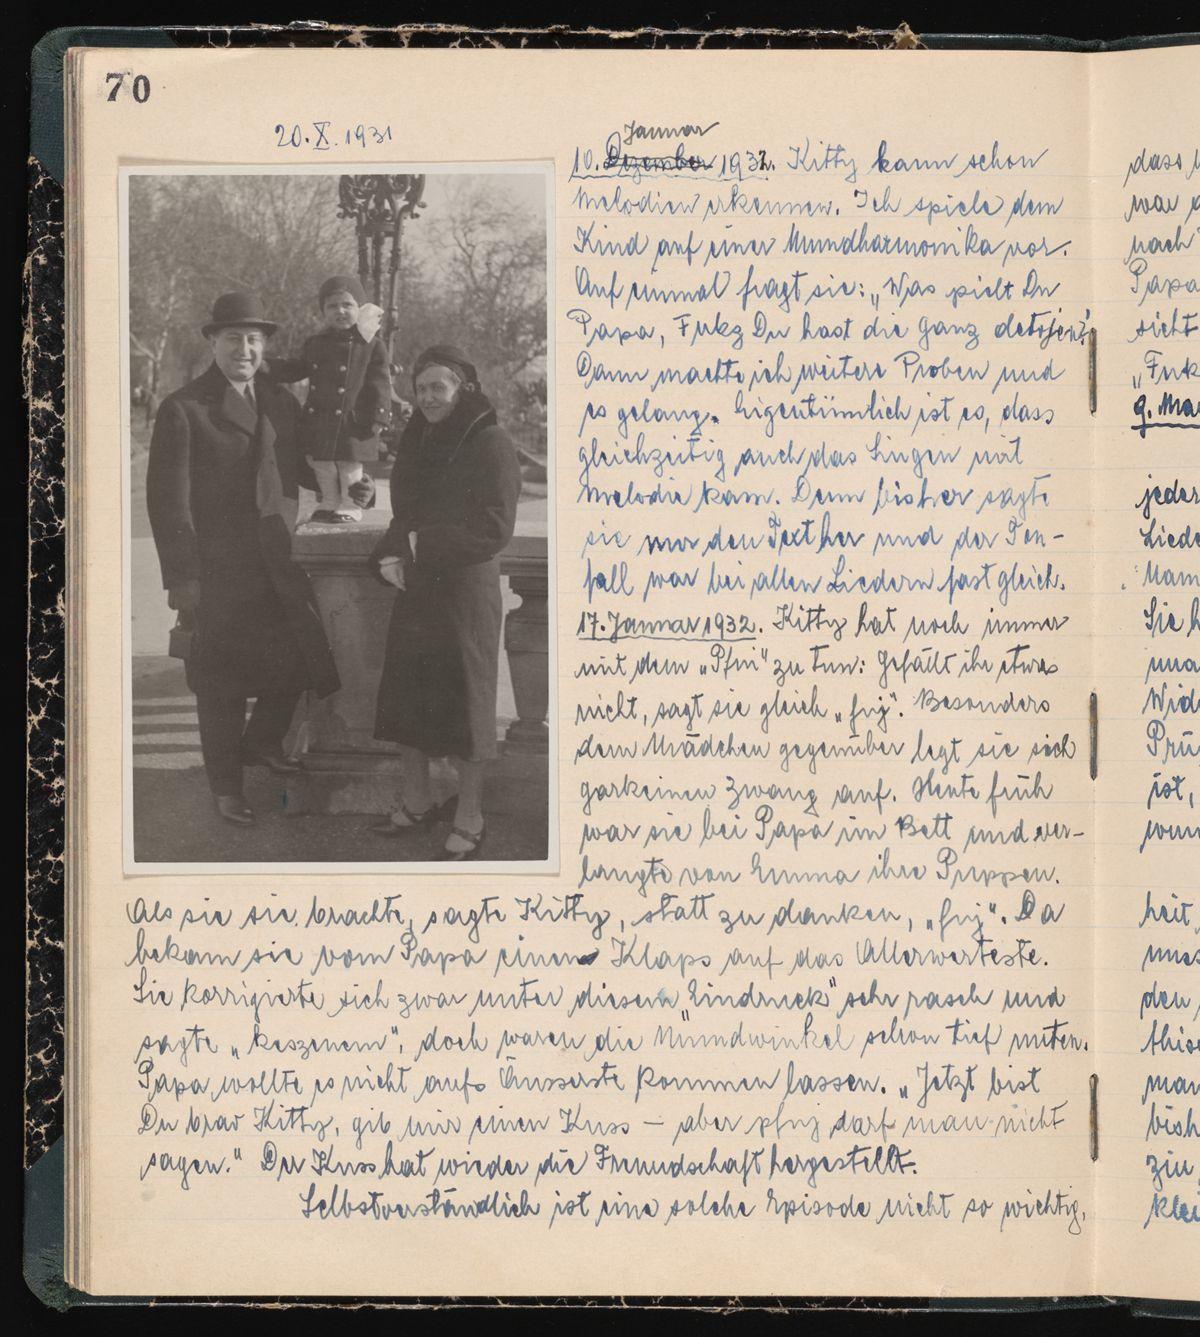 70
20. X. 1931
Januar
10. Dezember 1932. Kitty kann schon
Melodien erkennen. Ich spiele dem
Kind auf einer Mundharmonika vor.
Auf einmal fragt sie: „Was pielt Du
Papa, Fukz Du hast die Ganz
Dann machte ich weitere Proben und
es gelang. Eigentümlich ist es, dass
gleichzeitig auch das Singen mit
Melodie kam. Denn bisher sagte
sie nur den Text her und der Ton-
fall war bei allen Liedern fast gleich.
17. Januar 1932. Kitty hat noch immer
mit dem „Pfui" zu tun: Gefällt ihr etwas
nicht, sagt sie gleich „fuj". Besonders
dem Mädchen gegenüber legt sie sich
garkeinen Zwang auf. Heute früh
war sie bei Papa im Bett und ver-
langte von Emma ihre Puppen.
Als sie sie brachte, sagte Kitty, statt zu danken, „fuj". Da
bekam sie vom Papa einen Klaps auf das Allerwerteste.
Sie korrigierte sich zwar unter diesem „Eindruck" sehr rasch und
sagte „keszenem", doch waren die Mundwinkel schon tief unten.
Papa wollte es nicht aufs Äusserste kommen lassen. „Jetzt bist
Du brav Kitty, gib mir einen Kuss – aber pfuj darf man nicht
sagen." Der Kuss hat wieder die Freundschaft hergestellt.
Selbstverständlich ist eine solche Episode nicht so wichtig,
dass
war
nach
Papa
sieht
„Fuk
9. Ma
jeder
Liede
Mam
Sie h
una
Wid
Prü
ist,
wun
heit
mus
den
man
bish
zu
klei